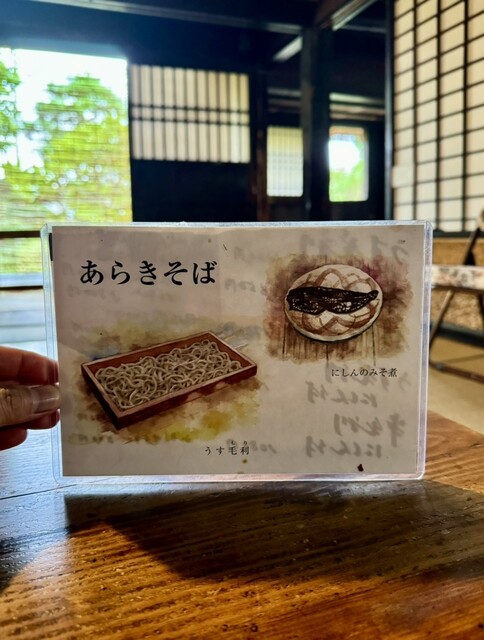 あらきそば
にしんのみそ煮
うす毛利